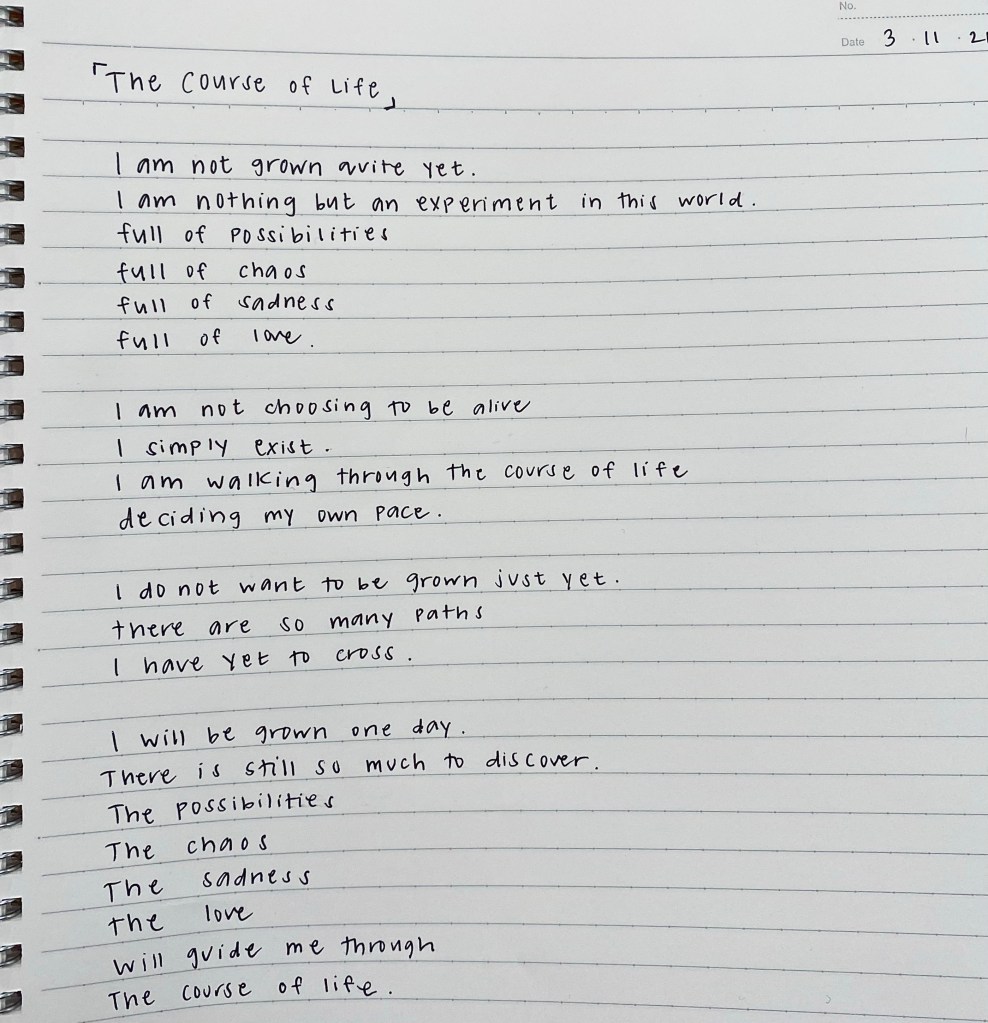 No.
Date 3 · 11 · 21
「The Course of Life」
I am not grown quite yet.
I am nothing but an experiment in this world.
full of possibilities
full of chaos
full of sadness
full of love.
I am not choosing to be alive
I simply exist.
I am walking through the course of life
deciding my own pace.
I do not want to be grown just yet.
there are so many paths
I have yet to cross.
I will be grown one day.
There is still so much to discover.
The possibilities
The chaos
The sadness
the love
will guide me through
The course of life.